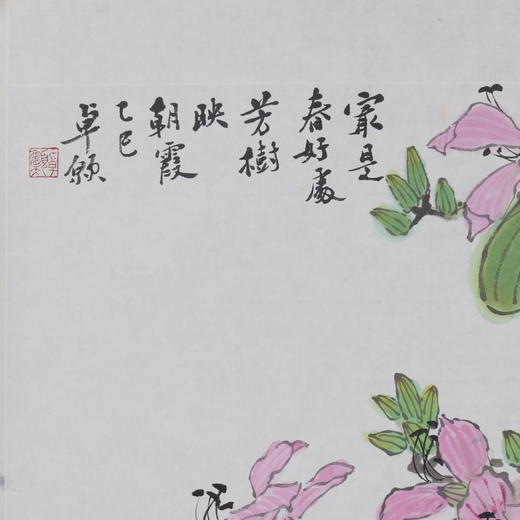 寂是
春好處
芳樹
映
朝霞
乙巳
卓願